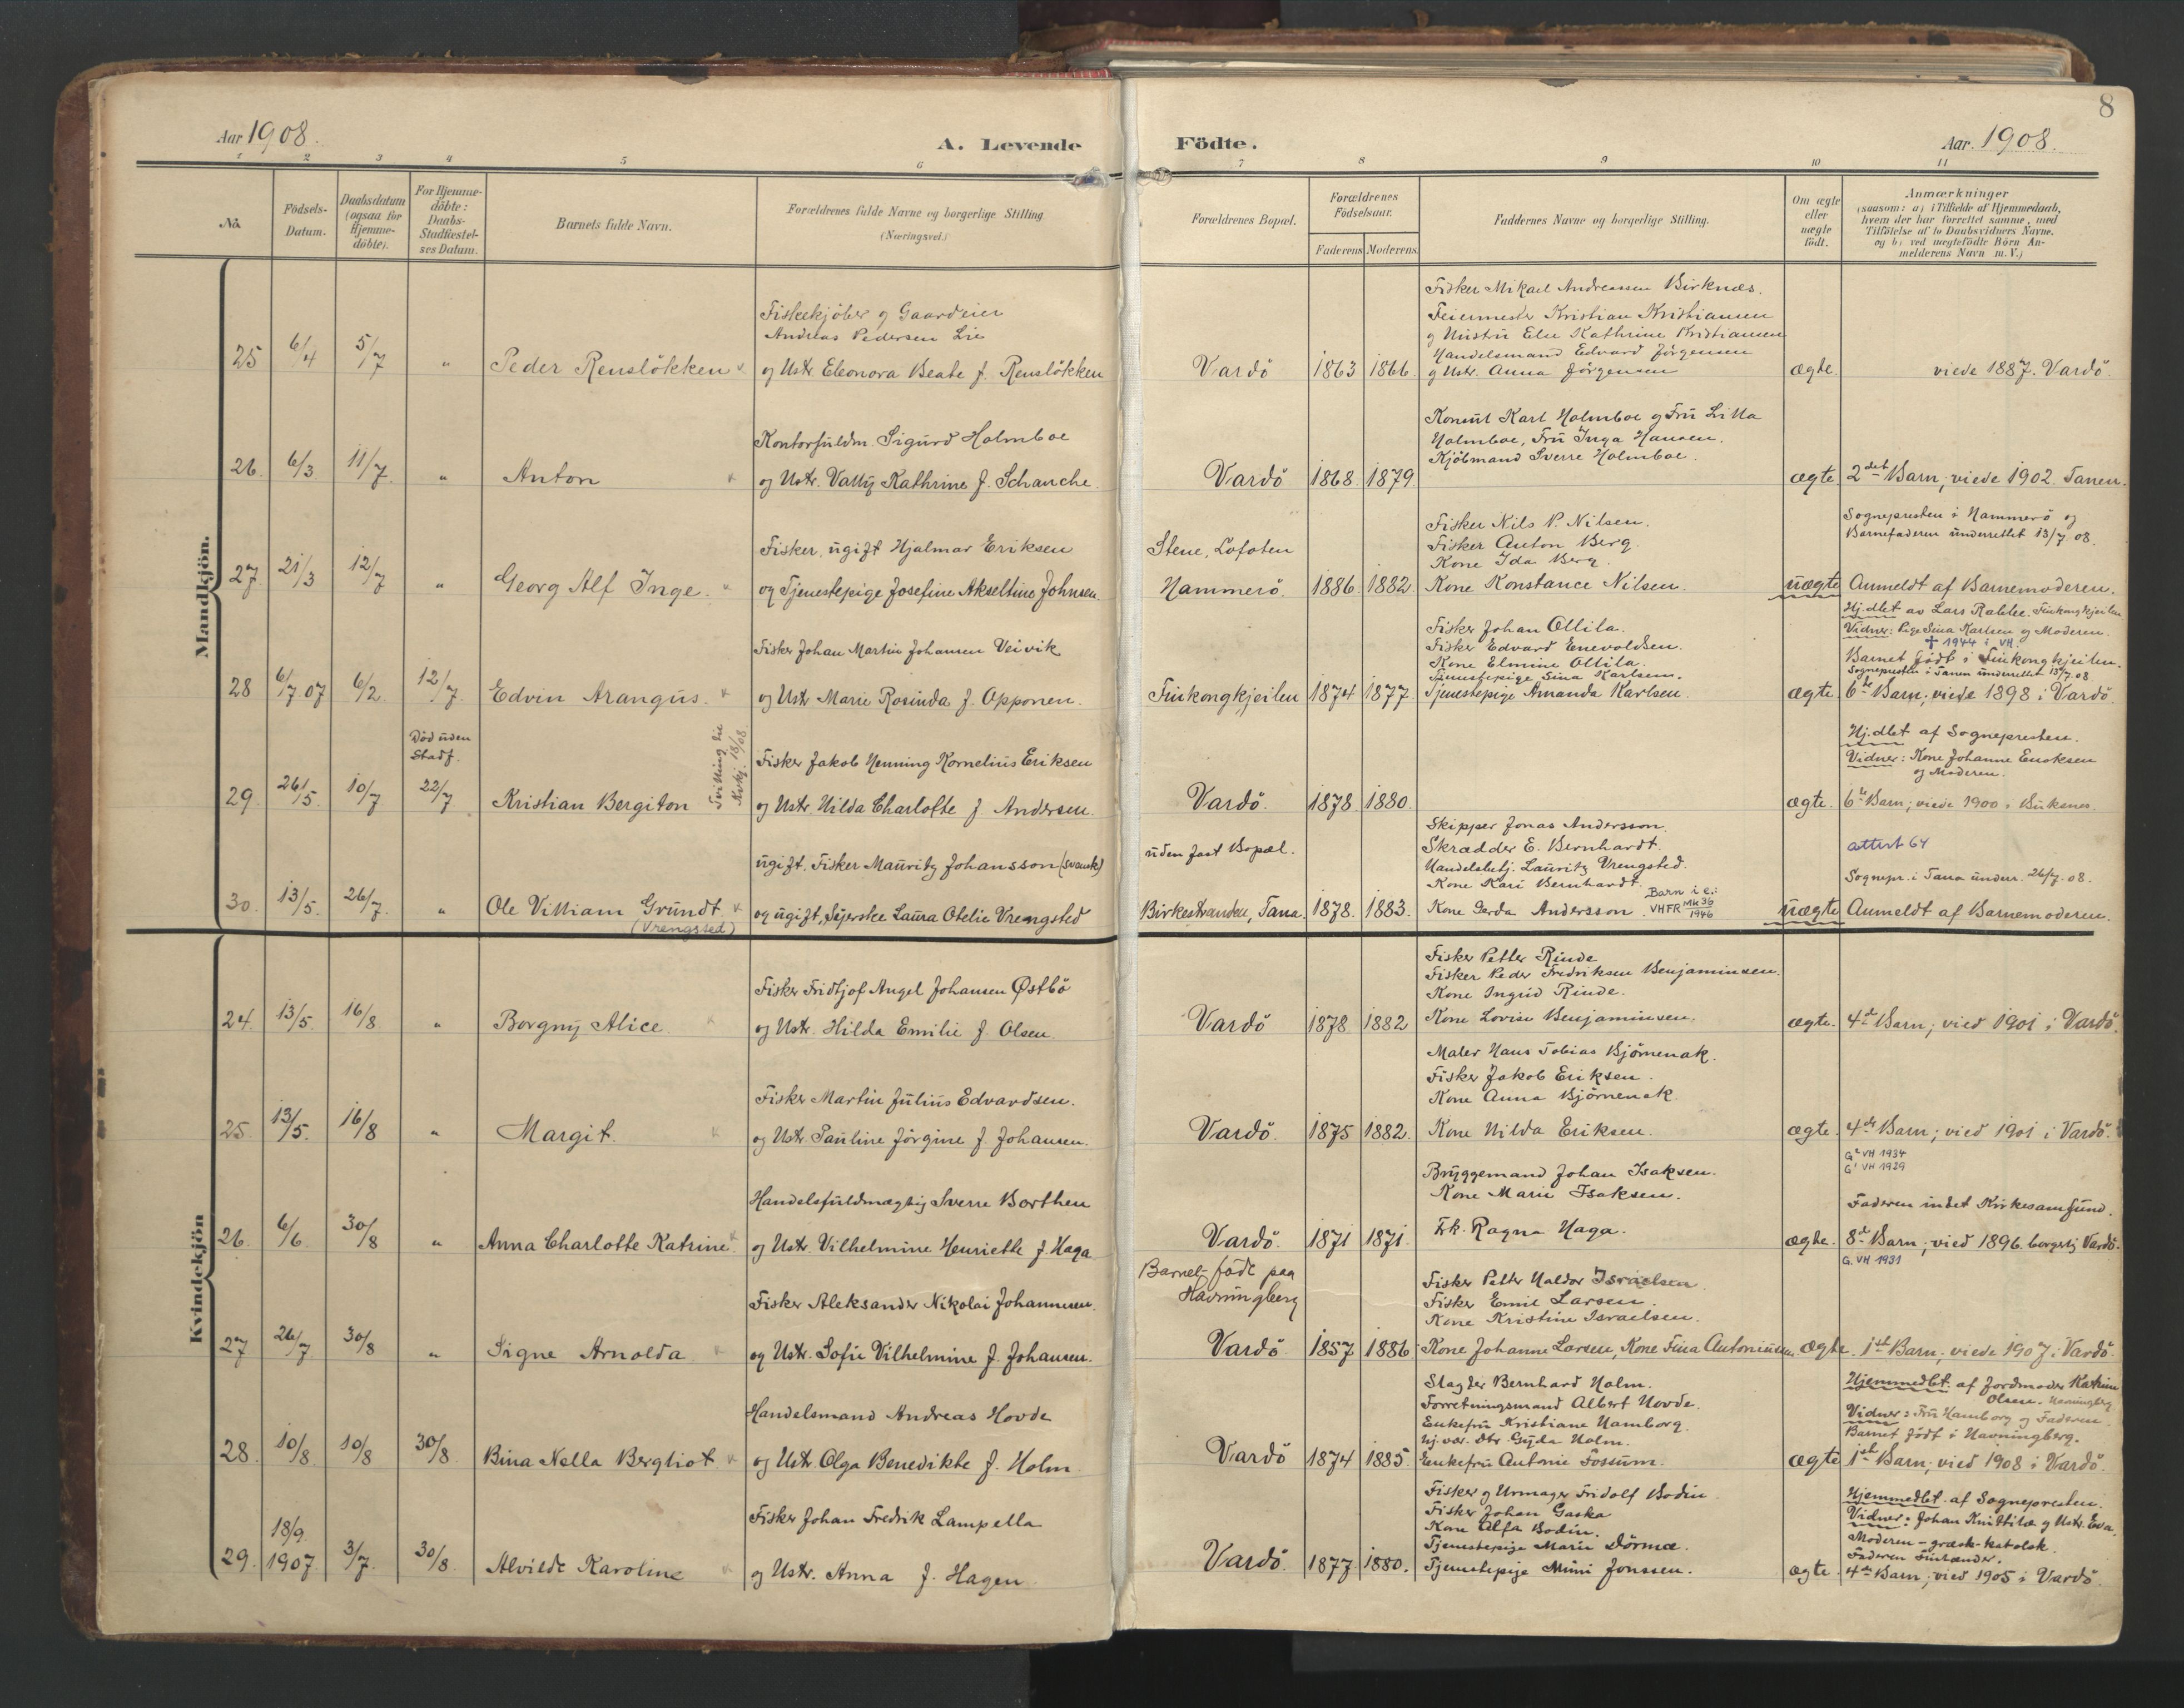 8
Aar 1908.
A. Levende
Födte.
Aar. 1908.
1 2 3 4 5 6 7 8 9 10 11
No.
Födsels-
Datum.
Daabsdatum
(ogsaa for
Hjemme-
döbte).
For Hjemme-
döbte:
Daabs-
Stadfæstel-
ses Datum.
Barnets fulde Navn.
Forældrenes fulde Navne og borgerlige Stilling
(Næringsvei.)
Forældrenes Bopæl.
Forældrenes
Födselsaar.
Faderens Moderens
Faddernes Navne og borgerlige Stilling.
Om ægte
eller
uægte
födt.
Anmærkninger
(saasom: a) i Tilfælde af Hjemmedaab,
hvem der har forrettet samme, med
Tilföielse af to Daabsvidners Navne,
og b) ved uægtefödte Börn An-
melderens Navn m.V.)
Mandkjön.
25 6/4 5/7 " Peder Renslökken
Fiskekjöber og Gaardeier
Andreas Pedersen Lie
og Ustr. Eleonora Beate f. Renslökken
Vardö 1863 1866.
Fisker Mikael Andreassen Birknæs.
Feiermester Kristian Kristiansen
og Hustru Else Kathrine Kristiansen
Handelsmand Edvard Jörgensen
og Ustr. Anna Jörgensen
ægte. viede 1887. Vardö.
26. 6/3 11/7 " Anton
Kontorfuldm. Sigurd Holmboe
og Ustr. Vally Kathrine f. Schanche.
Vardö 1868. 1879.
Konsul Karl Holmboe og Fru Lilla
Holmboe, Fru Inga Hansen.
Kjöbmand Sverre Holmboe.
ægte. 2det Barn; viede 1902. Tanen.
27. 21/3 12/7 " Georg Alf Inge.
Fisker, ugift Hjalmar Eriksen
og Tjenestepige Josefine Akseltine Johnsen.
Stene, Lofoten
Hammerö. 1886. 1882.
Fisker Nils P. Nilsen.
Fisker Anton Berg.
Kone Ida Berg.
Kone Konstance Nilsen.
uægte
Sognepresten i Hammerö og
Barnefaderen underrettet 13/7 08.
Anmeldt af Barnemoderen.
28 6/7 07 6/2. 12/7. Edvin Arangus.
Fisker Johan Martin Johansen Veivik
og Ustr Marie Rosinda f. Opponen.
Finkongkjeilen 1874 1877
Fisker Johan Ollila.
Fisker Edvard Enevoldsen.
Kone Elmine Ollila.
Tjenestepige Sina Karlsen.
Tjenestepige Amanda Karlsen.
ægte
Hj.dbt av Lars Rabbe. Finkongkjeilen
Vidner: Pige Sina Karlsen og Moderen.
✝ 1944 i VH.
Barnet födt i Finkongkjeilen.
Sognepresten i Tanen underrettet 13/7 08
6te Barn; viede 1898 i Vardö
29. 26/5. 10/7
Död uden
Stadf.
22/7
Kristian Bergiton
Fisker Jakob Henning Kornelius Eriksen
og Ustr. Hilda Charlotte f. Andersen.
Vardö. 1878 1880.
ægte.
Hj.dbt af Sognepresten.
Vidner: Kone Johanne Enoksen
og Moderen.
6te Barn; viede 1900 i Buksnes.
30. 13/5. 26/7. " Ole Villiam Grundt
(Vrengsted)
ugift. Fisker Mauritz Johansson (svensk)
og ugift, Sijerske Laura Otelie Vrengsted
uden fast Bopæl.
Birkestranden, Tana. 1878. 1883.
Skipper Jonas Andersson.
Skrædder E. Bernhardt.
Handelsbetj. Lauritz Vrengsted.
Kone Kari Bernhardt.
Kone Gerda Andersson.
Barn i e.:
VHFR Mk 36
1946
uægte
attest 64
Sognepr. i Tana underr. 26/7. 08.
Anmeldt af Barnemoderen.
Kvindekjön
24. 13/5. 16/8 " Borgny Alice.
Fisker Fridtjof Angel Johansen Østbö
og Ustr. Hilda Emilie f. Olsen.
Vardö 1878 1882
Fisker Petter Rinde
Fisker Peder Fredriksen Benjaminsen.
Kone Ingrid Rinde.
Kone Lovise Benjaminsen.
ægte. 4de Barn; vied 1901 i Vardö.
25. 13/5. 16/8 " Margit.
Fisker Martin Julius Edvardsen.
og Ustr. Pauline Jörgine f. Johansen.
Vardö. 1875 1882.
Maler Hans Tobias Björnenak.
Fisker Jakob Eriksen.
Kone Anna Björnenak.
Kone Hilda Eriksen.
ægte. 4de Barn; vied 1901 i Vardö.
G² VH 1934
G¹ VH 1929
26. 6/6. 30/8 " Anna Charlotte Katrine.
Handelsfuldmægtig Sverre Borthen
og Ustr. Vilhelmine Henriette f. Haga
Vardö. 1871 1871.
Bryggemand Johan Isaksen.
Kone Marie Isaksen.
Frk. Ragna Haga.
ægte.
Faderen intet Kirkesamfund.
8de Barn; vied 1896 borgerlig Vardö.
G. VH 1931
27 26/7 30/8 " Signe Arnolda
Fisker Aleksander Nikolai Johannesen.
og Ustr. Sofie Vilhelmine f. Johansen.
Barnet födt paa
Havningberg
Vardö 1857 1886.
Fisker Petter Haldor Israelsen.
Fisker Emil Larsen.
Kone Kristine Israelsen.
Kone Johanne Larsen, Kone Fina Antoniusen.
ægte. 1ste Barn; viede 1907 i Vardö.
28. 10/8. 10/8 30/8. Bina Nella Bergliot
Handelsmand Andreas Hovde
og Ustr. Olga Benedikte f. Holm
Vardö 1874 1885.
Slagter Bernhard Holm.
Forretningsmand Albert Hovde.
Enkefru Kristiane Hamborg.
Hj.vær. Dtr. Gyda Holm.
Enkefru Antonie Fossum.
ægte
Hjemmedbt. af Jordmoder Katrine
Olsen.
Vidner: Fru Hamborg og Faderen.
Barnet födt i Havningberg.
1ste Barn; vied 1908 i Vardö.
29. 18/9.
1907 3/7. 30/8. Alvilde Karoline
Fisker Johan Fredrik Lampella
og Ustr. Anna f. Hagen.
Vardö. 1877 1880.
Fisker og Urmager Fridolf Bodin.
Fisker Johan Gaska
Kone Alfa Bodin.
Tjenestepige Marie Dörmæ.
Tjenestepige Mimi Jonssen.
ægte.
Hjemmedbt. af Sognepresten.
Vidner: Johan Knittilæ og Ustr. Eva.
Moderen - græsk-katolsk.
Faderen Finlænder.
4de Barn; vied 1905 i Vardö.